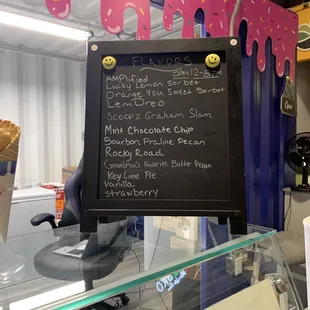 FLAVORS
Open 12-8
AMPlified
Lucky Lemon Sorbet
Orange You Sweet Sorbet
LemOreo
Scoopz Graham Slam
Mint Chocolate Chip
Bourbon Praline Pecan
Rocky Road
Grandma's Favorite Butter Pecan
Key Lime Pie
vanilla
strawberry